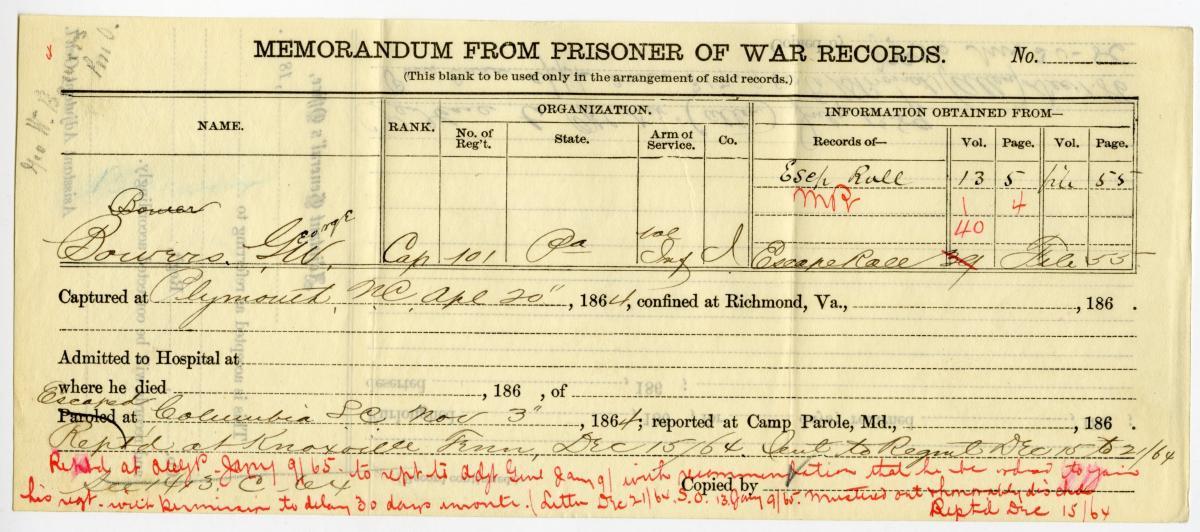 MEMORANDUM FROM PRISONER OF WAR RECORDS. No.
(This blank to be used only in the arrangement of said records.)
NAME. RANK. ORGANIZATION. INFORMATION OBTAINED FROM—
No. of Reg't. State. Arm of Service. Co. Records of— Vol. Page. Vol. Page.
Escp Roll 13 5 file 55
MR 1 4
Bower 40
Bowers George W. Cap 101 Pa Vol Inf I Escape Roll 39 File 55
Captured at Plymouth, N.C. Apl 20", 1864, confined at Richmond, Va., , 186 .
Admitted to Hospital at
where he died , 186 , of
Escaped
Paroled at Columbia S.C. Nov 3", 1864; reported at Camp Parole, Md., , 186 .
Rept'd at Knoxville Tenn, Dec 15/64. Sent to Regmt Dec 15 to 21/64
Reptd at Jany 9/65 to rept to Adjt Genl Jany 9/ with recommendation that he be to join
Copied by
his regt. with permission to delay 30 days enroute. (Letter Dec 21/64 S.O. 13 Jany 9/65. Mustered out & honorably dischd
Reptd Dec 15/64